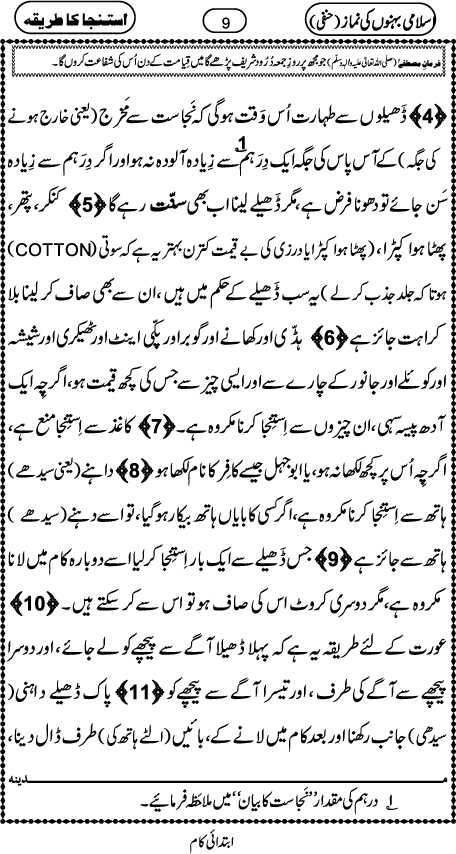 اسلامی بہنوں کی نماز (حنفی)
9
استنجا کا طریقہ
فرمانِ مصطفےٰ (صلی اللہ تعالیٰ علیہ واٰلہ وسلم) جو مجھ پر روزِ جمعہ دُرُود شریف پڑھے گا میں قِیامت کے دن اُس کی شَفاعت کروں گا۔
﴿4﴾ ڈَھیلوں سے طہارت اُس وَقت ہوگی کہ نَجاست سے مَخرَج (یعنی خارج ہونے
کی جگہ) کے آس پاس کی جگہ ایک دِرہم1 سے زیادہ آلودہ نہ ہو اور اگر دِرہم سے زِیادہ
سَن جائے تو دھونا فرض ہے، مگر ڈَھیلے لینا اب بھی سنّت رہے گا ﴿5﴾ کنکر، پتھر،
پھٹا ہوا کپڑا، (پھٹا ہوا کپڑا یا درزی کی بے قیمت کترن بہتر یہ ہے کہ سوتی (COTTON)
ہوتا کہ جلد جذب کر لے) یہ سب ڈھیلے کے حکم میں ہیں، ان سے بھی صاف کر لینا بلا
کراہت جائز ہے ﴿6﴾ ہڈّی اور کھانے اور گوبر اور پکّی اینٹ اور ٹھیکری اور شیشہ
اور کوئلے اور جانور کے چارے سے اور ایسی چیز سے جس کی کچھ قیمت ہو، اگرچِہ ایک
آدھ پیسہ سہی، ان چیزوں سے اِستِنجا کرنا مکروہ ہے۔ ﴿7﴾ کاغذ سے اِستِنجا منع ہے،
اگرچِہ اُس پر کچھ لکھا نہ ہو، یا ابوجہل جیسے کافِر کا نام لکھا ہو ﴿8﴾ داہنے (یعنی سیدھے)
ہاتھ سے اِستِنجا کرنا مکروہ ہے، اگر کسی کا بایاں ہاتھ بیکار ہوگیا، تو اسے دہنے (سیدھے)
ہاتھ سے جائز ہے ﴿9﴾ جس ڈَھیلے سے ایک بار اِستِنجا کر لیا اسے دوبارہ کام میں لانا
مکروہ ہے، مگر دوسری کروٹ اس کی صاف ہو تو اس سے کر سکتے ہیں۔ ﴿10﴾
عورت کے لئے طریقہ یہ ہے کہ پہلا ڈھیلا آگے سے پیچھے کو لے جائے، اور دوسرا
پیچھے سے آگے کی طرف، اور تیسرا آگے سے پیچھے کو ﴿11﴾ پاک ڈھیلے داہنی (
سیدھی) جانب رکھنا اور بعد کام میں لانے کے، بائیں (الٹے ہاتھ کی) طرف ڈال دینا،
مدینہ
1 درہم کی مقدار ''نَجاست کا بیان'' میں ملاحَظہ فرمائیے۔
ابتدائی کام